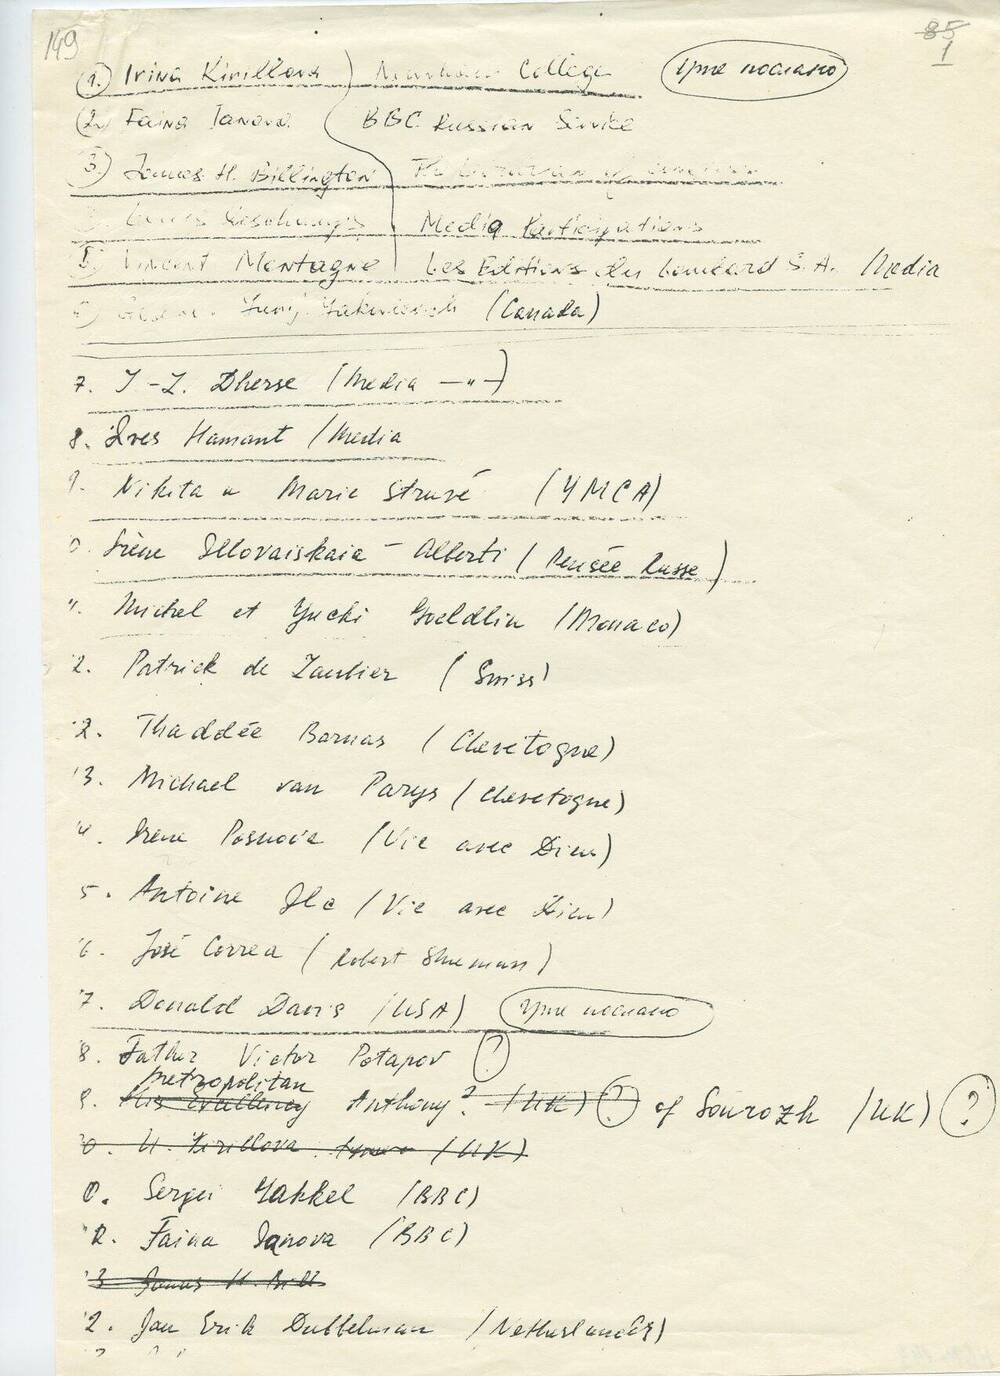 149
85
1
1. Irina Kirillova Newnham College уже послано
2. Faina Ianova BBC Russian Service
3. James H. Billington The of
Media Participations
5. Vincent Montagne Les Editions du Lombard S.A. Media
Yurij (Canada)
7. J-L. Dherse (Media —"—)
8. Ives Hamant (Media
9. Nikita и Marie Struvé (YMCA)
0. Irène Illovaiskaia - Alberti (Pensée Russe)
Michel et Yucki Goeldlin (Monaco)
2. Patrick de Laubier (Swiss)
2. Thaddée Barnas (Chevetogne)
'3. Michael van Parys (Chevetogne)
4. Irene Posnova (Vie avec Dieu)
5. Antoine Ilc (Vie avec Dieu)
6. José Correa (Robert Shumann)
7. Donald Davis (USA) уже послано
8. Father Victor Potapov ?
metropolitan
9. His Excellency Anthony? (UK) ? of Sourozh (UK) ?
0. I. Kirillova (UK)
0. Sergei Hakkel (BBC)
2. Faina Ianova (BBC)
3 James H. Bill
2. Jan Erik Dubbelman (Netherlands)